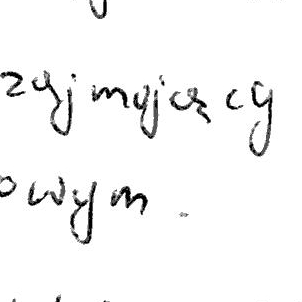 zajmyjący
owym.